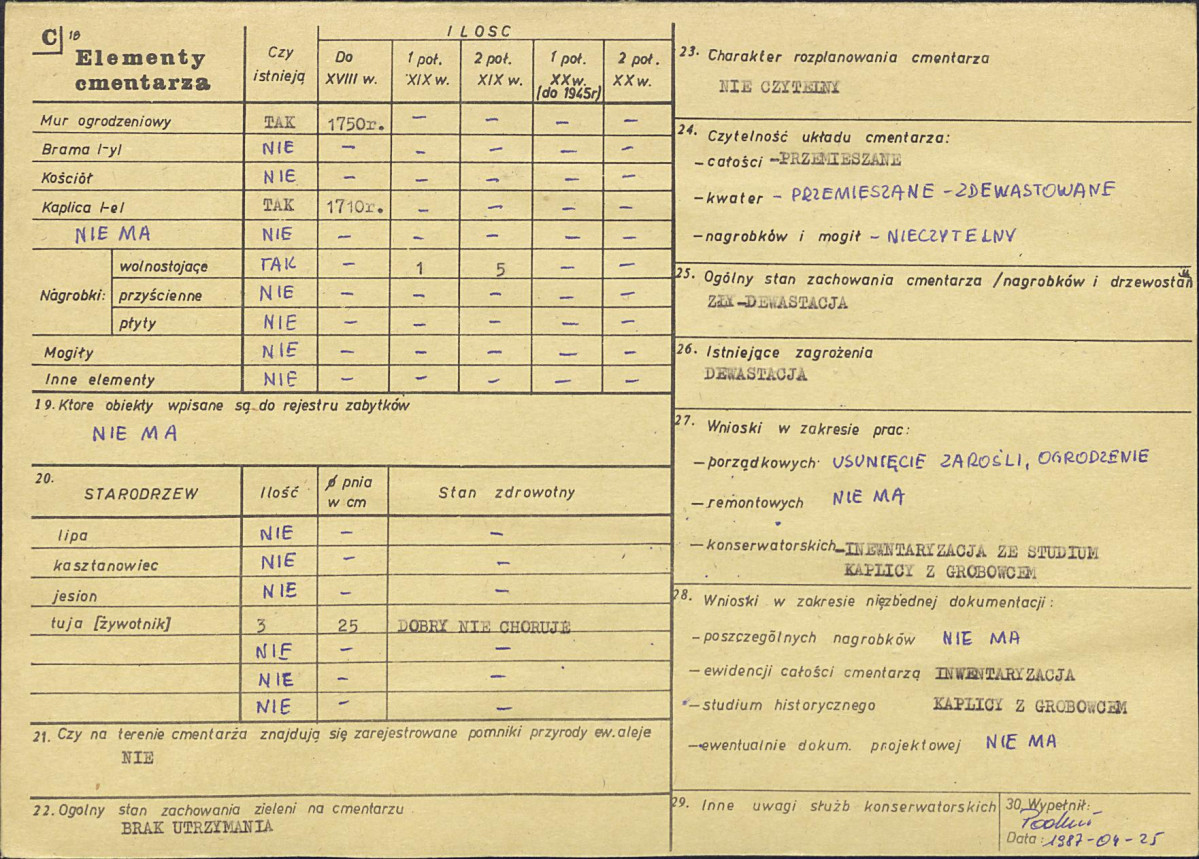 C 18 Elementy cmentarza
Czy istnieją
ILOSC
Do XVIII w.
1 poł. XIX w.
2 poł. XIX w.
1 poł. XX w. (do 1945r)
2 poł. XX w.
Mur ogrodzeniowy TAK 1750r. — — — —
Brama /-y/ NIE — — — — —
Kościół NIE — — — — —
Kaplica /-e/ TAK 1710r. — — — —
NIE MA NIE — — — — —
Nagrobki: wolnostojące TAK — 1 5 — —
przyścienne NIE — — — — —
płyty NIE — — — — —
Mogiły NIE — — — — —
Inne elementy NIE — — — — —
19. Ktore obiekty wpisane są do rejestru zabytków
NIE MA
20. STARODRZEW Ilość ø pnia w cm Stan zdrowotny
lipa NIE — —
kasztanowiec NIE — —
jesion NIE — —
tuja [żywotnik] 3 25 DOBRY NIE CHORUJE
NIE — —
NIE — —
NIE — —
21. Czy na terenie cmentarza znajdują się zarejestrowane pomniki przyrody ew. aleje
NIE
22. Ogolny stan zachowania zieleni na cmentarzu
BRAK UTRZYMANIA
23. Charakter rozplanowania cmentarza
NIE CZYTELNY
24. Czytelność układu cmentarza:
— całości — PRZEMIESZANE
— kwater — PRZEMIESZANE — ZDEWASTOWANE
— nagrobków i mogił — NIECZYTELNY
25. Ogólny stan zachowania cmentarza /nagrobków i drzewostan
ZŁY—DEWASTACJA
26. Istniejące zagrożenia
DEWASTACJA
27. Wnioski w zakresie prac:
— porządkowych USUNIĘCIE ZAROŚLI, OGRODZENIE
— remontowych NIE MA
— konserwatorskich — INEWNTARYZACJA ZE STUDIUM
KAPLICY Z GROBOWCEM
28. Wnioski w zakresie niezbednej dokumentacji:
— poszczególnych nagrobków NIE MA
— ewidencji całości cmentarza INWENTARYZACJA
— studium historycznego KAPLICY Z GROBOWCEM
— ewentualnie dokum. projektowej NIE MA
29. Inne uwagi służb konserwatorskich
30. Wypełnił:
Data: 1987-04-25